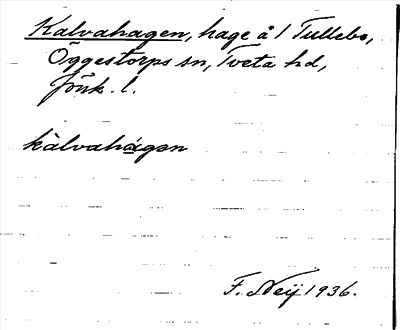 Kalvahagen, hage å 1 Tullebo,
Öggestorps sn, Tveta hd,
Jönk. l.
kàlvahágən
F. Neij 1936.